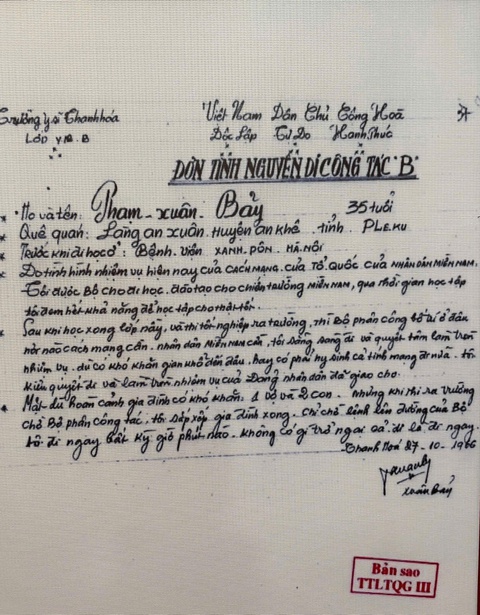 Trường y sĩ Thanh hóa
Việt Nam Dân Chủ Cộng Hoà
37
Lớp Y.18.B
Độc Lập Tự Do Hạnh Phúc
ĐƠN TÌNH NGUYỆN ĐI CÔNG TÁC "B"
* Họ và tên: Phạm - xuân - Bảy 35 tuổi
* Quê quán: Làng an xuân. Huyện an khê tỉnh PLeKu
* Trước khi đi học ở: Bệnh. Viện XANH. PÔN - HÀ. NỘI
* Do tình hình nhiệm vụ hiện nay của CÁCH MẠNG. của TỔ QUỐC của NHÂN DÂN MIỀN NAM.
Tôi được Bộ cho đi học. đào tạo cho chiến trường MIỀN NAM, qua thời gian học tập
tôi đem hết khả năng để học tập cho thật tốt.
* Sau khi học xong lớp này, và thi tốt nghiệp ra trường, thì Bộ phân công bố trí ở đâu
nơi nào cách mạng cần. nhân dân MIỀN NAM cần. tôi sẵn sàng đi và quyết tâm làm tròn
nhiệm vụ. dù có khó khăn gian khổ đến đâu. hay có phải hy sinh cả tính mạng đi nữa. tôi
kiên quyết đi và làm tròn nhiệm vụ của Đảng nhân dân đã giao cho.
* Mặt dù hoàn cảnh gia đình có khó khăn. 1 vợ và 2 con. nhưng khi thi ra trường
chờ Bộ phân công tác, tôi sắp xếp gia đình xong. chỉ chờ lệnh lên đường của Bộ
tô đi ngay bất kỳ giờ phút nào. không có gì trở ngại cả để là đi ngay.
Thanh Hoá 27-10-1966
Xuân Bảy
Bản sao
TTLTQG III